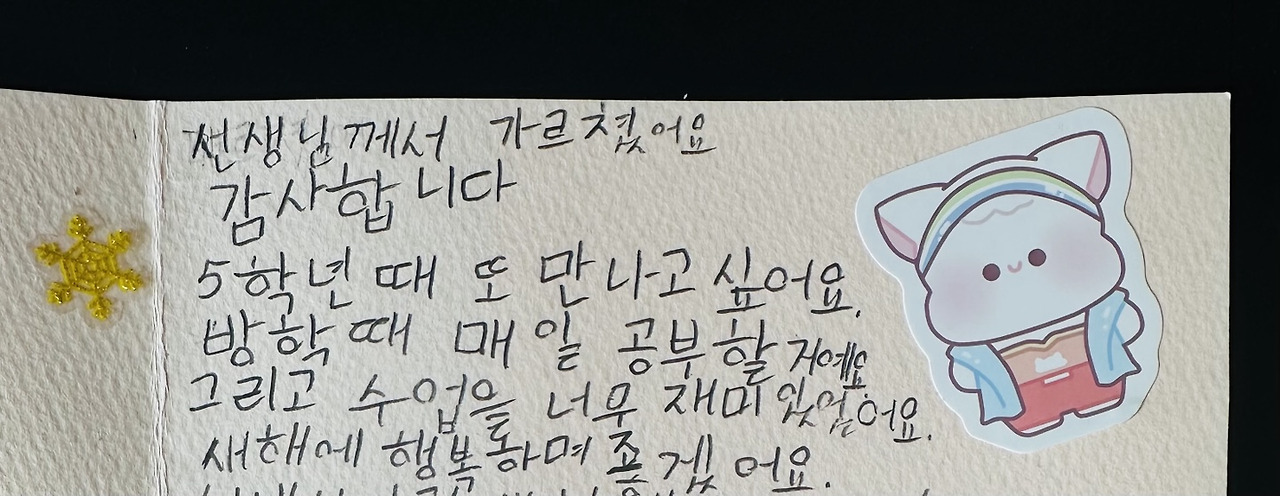 선생님께서 가르쳤어요
감사합니다
5학년 때 또 만나고 싶어요.
방학때 매일 공부할 거예요
그리고 수업을 너무 재미있었어요.
새해에 행복하며 좋겠어요.